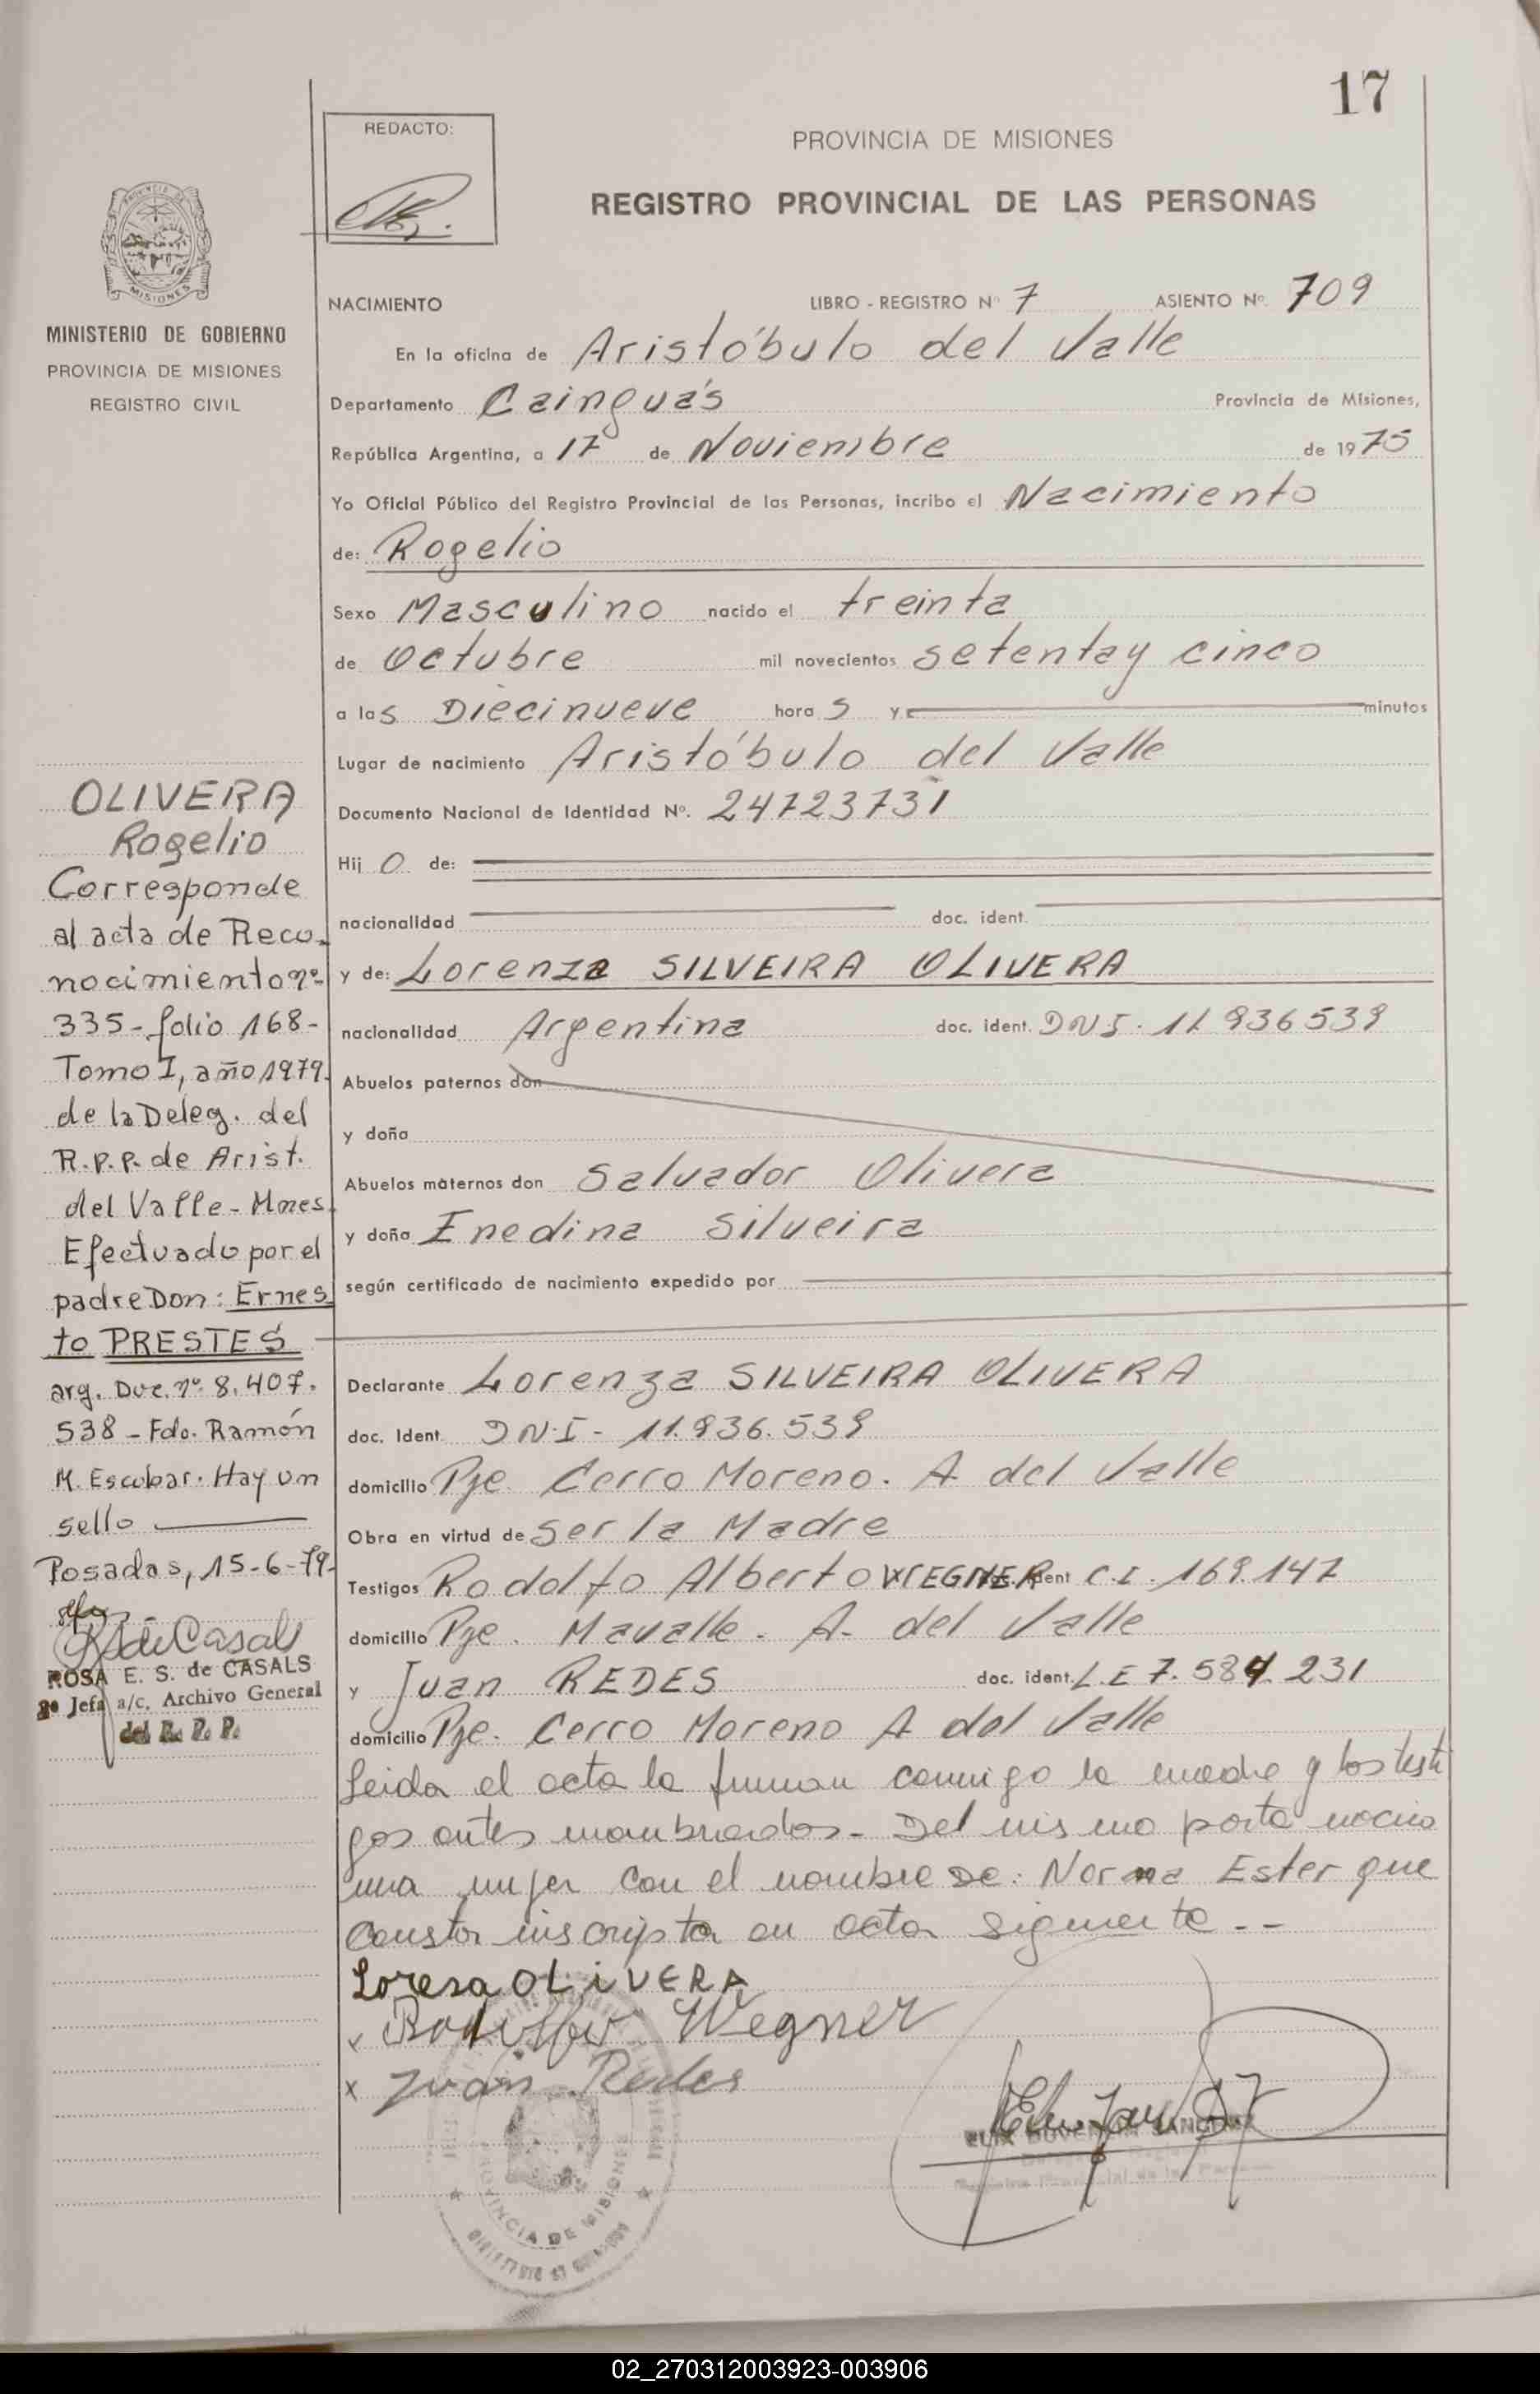 17
REDACTO:
PROVINCIA DE MISIONES
REGISTRO PROVINCIAL DE LAS PERSONAS
NACIMIENTO LIBRO - REGISTRO Nº 7 ASIENTO Nº. 709
En la oficina de Aristóbulo del Valle
Departamento Cainguás Provincia de Misiones,
República Argentina, a 17 de Noviembre de 1975
Yo Oficial Público del Registro Provincial de las Personas, incribo el Nacimiento
de: Rogelio
Sexo Masculino nacido el treinta
de Octubre mil novecientos setentay cinco
a las Diecinueve horas y minutos
Lugar de nacimiento Aristóbulo del Valle
Documento Nacional de Identidad Nº. 24723731
Hijo de:
nacionalidad doc. ident.
y de: Lorenza SILVEIRA OLIVERA
nacionalidad Argentina doc. ident. DNI. 11.936539
Abuelos paternos don
y doña
Abuelos maternos don Salvador Olivera
y doña Enedina Silveira
según certificado de nacimiento expedido por
Declarante Lorenza SILVEIRA OLIVERA
doc. Ident. DN.I - 11.936.539
domicilio Pje. Cerro Moreno. A del Valle
Obra en virtud de ser la Madre
Testigos Rodolfo Alberto WEGNER ident C.I. 169.147
domicilio Pje. Mavalle. A. del Valle
y Juan REDES doc. ident. L.E 7.584.231
domicilio Pje. Cerro Moreno A del Valle
Leida el acta la firman conmigo la madre y los testi
gos antes nombrados. Del mismo parto nacio
una mujer con el nombre de: Norma Ester que
consta inscripta en acta siguiente. --
Loresa OLiVERA
x Rodolfo Wegner
x Juan Redes
PROVINCIA DE MISIONES
MINISTERIO DE GOBIERNO
MISIONES
MINISTERIO DE GOBIERNO
PROVINCIA DE MISIONES
REGISTRO CIVIL
OLIVERA
Rogelio
Corresponde
al acta de Reco-
nocimiento nº-
335-folio 168-
Tomo I, año 1979.
de la Deleg. del
R.p.p. de Arist.
del Valle - Mnes.
Efectuado por el
padre Don: Ernes
to PRESTES
arg. Doc. nº 8.407.
538 - Fdo. Ramón
M. Escobar. Hay un
sello
Posadas, 15-6-79-
R S de Casals
ROSA E. S. de CASALS
2º Jefa a/c. Archivo General
del R. P. P.
02_270312003923-003906